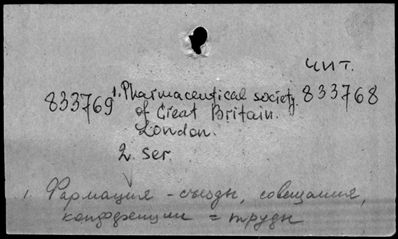 чит.
833769 1. Pharmaceutical society 833768
of Great Britain.
London.
2. ser
1. Фармация - съезды, совещания,
конференции = труды